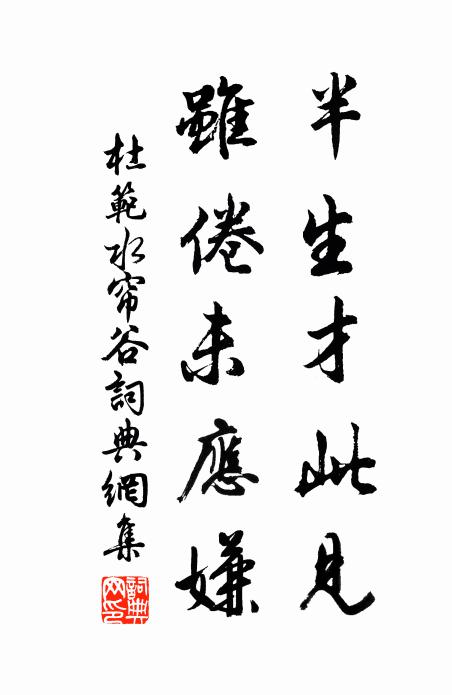 半生才此見
雖倦未應嫌
杜範水帘谷詞典網集
詞典網印